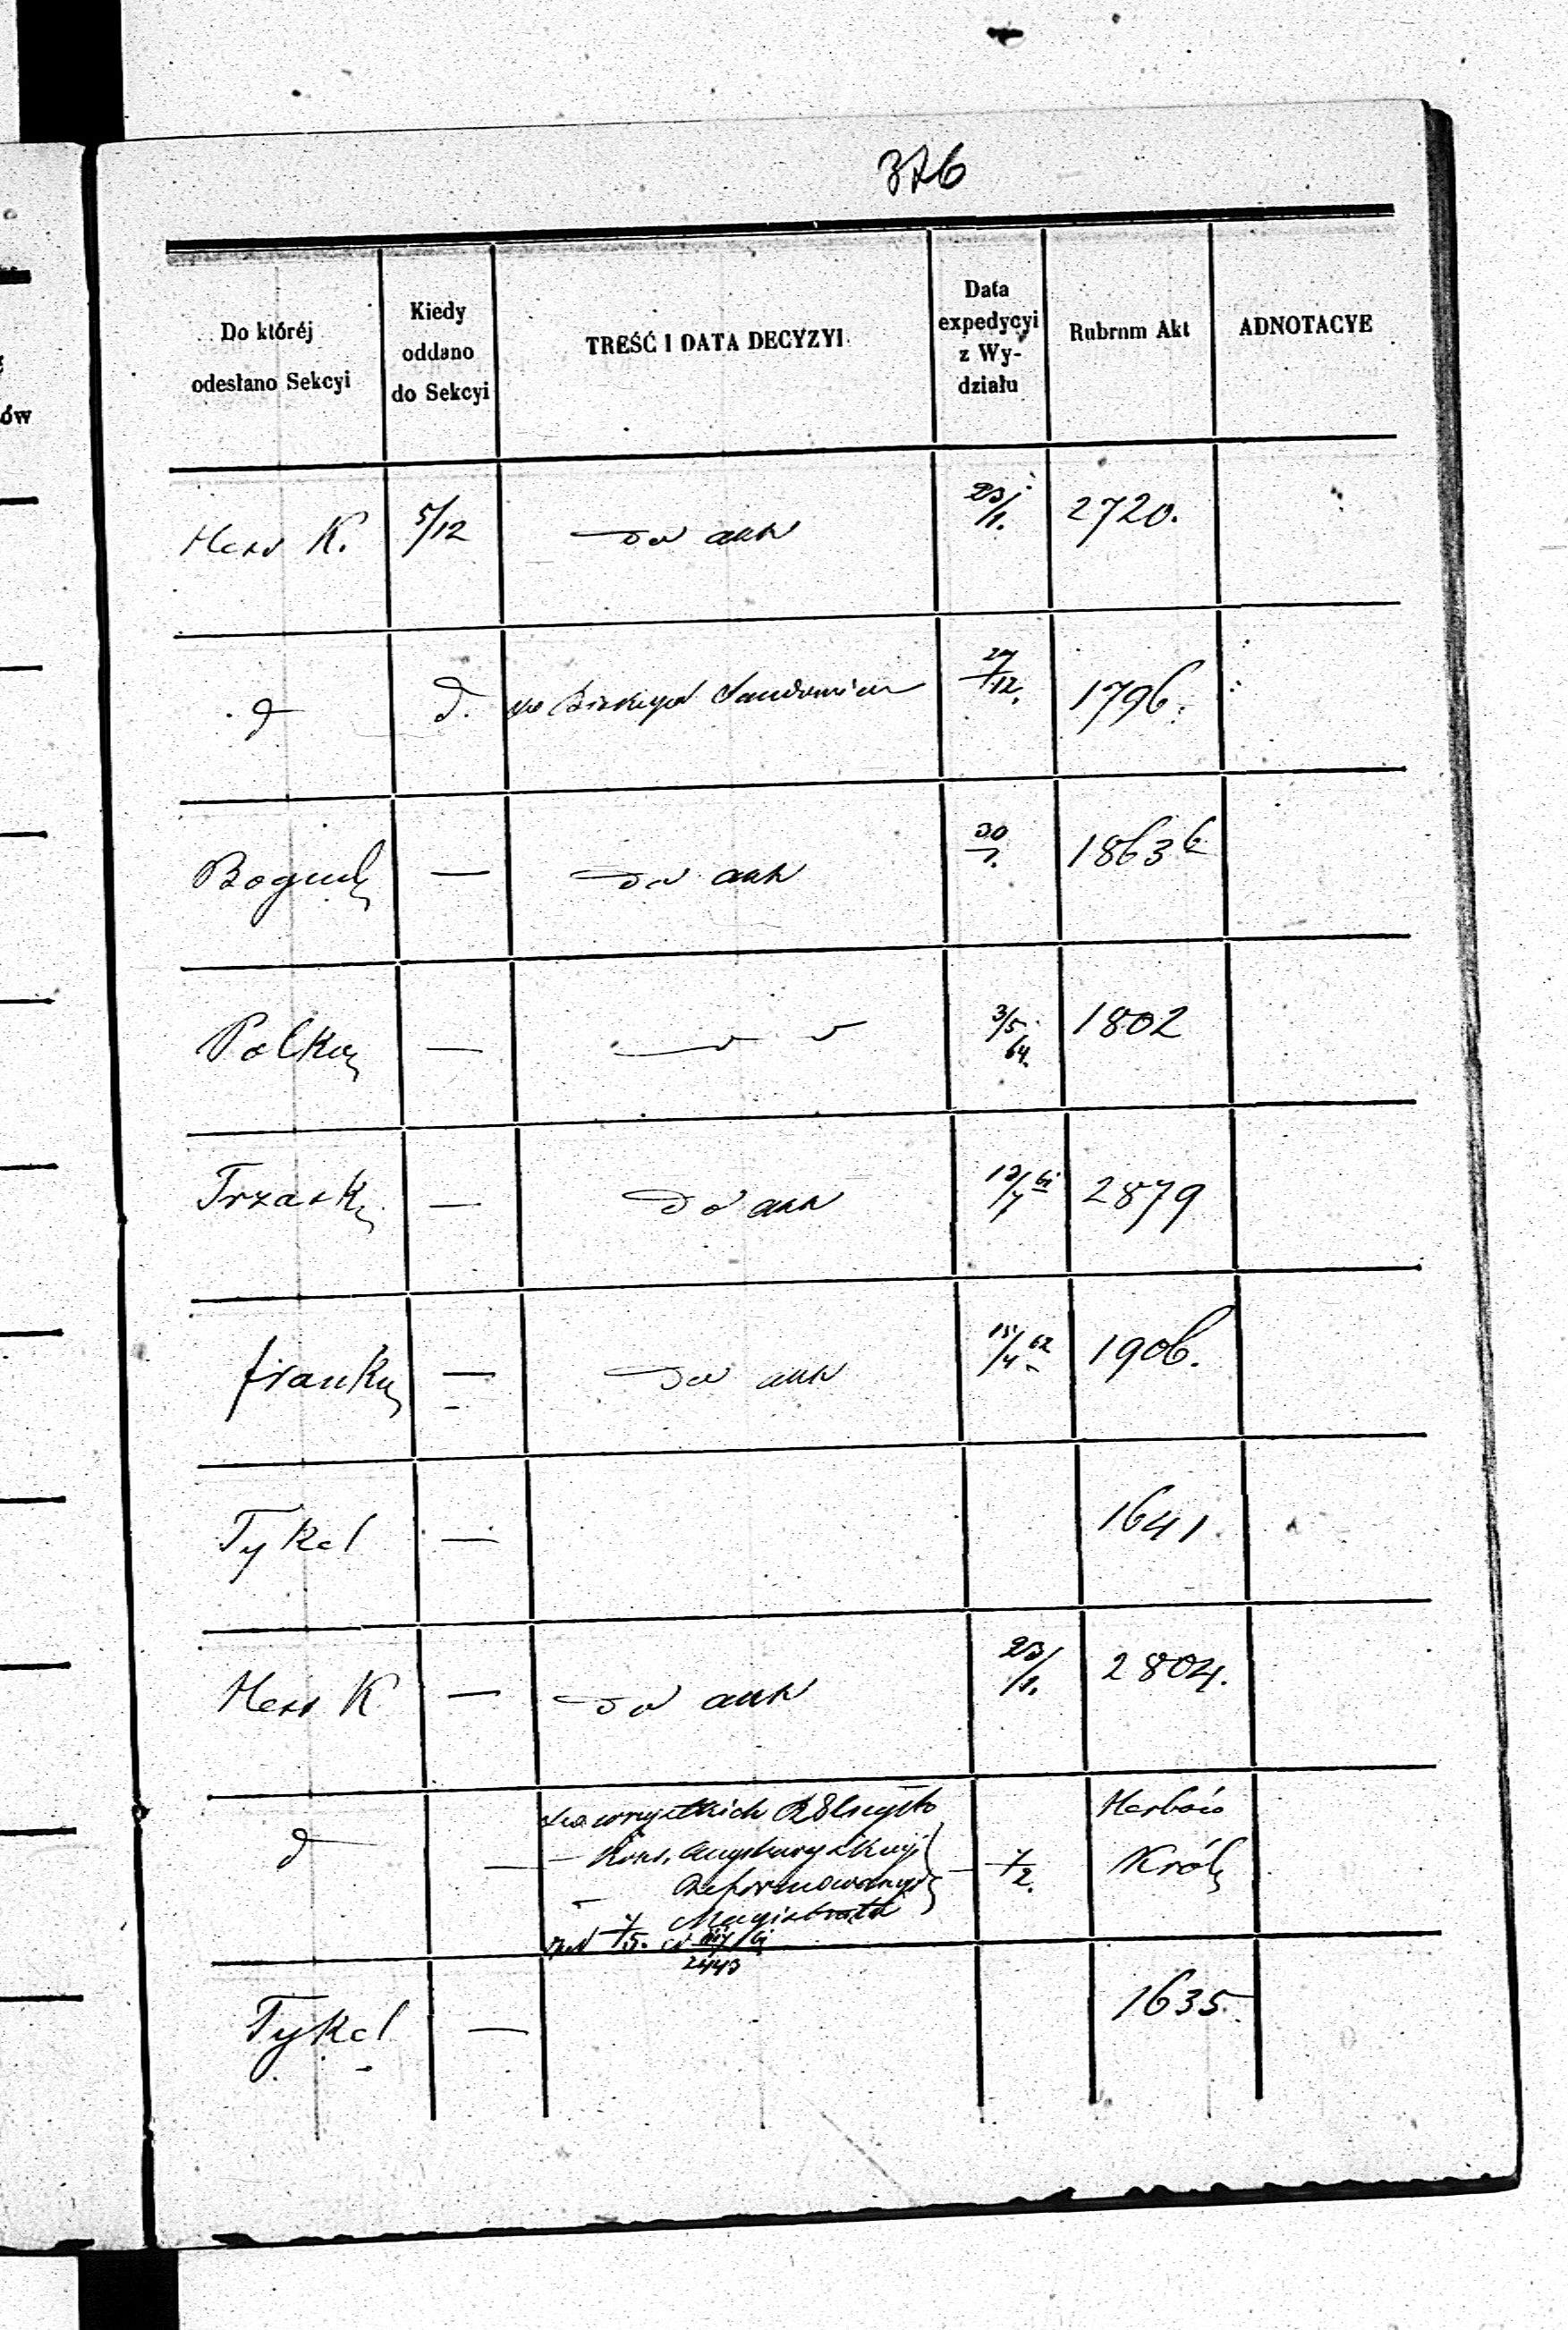 376
Do któréj
odesłano Sekcyi
Kiedy
oddano
do Sekcyi
TREŚĆ I DATA DECYZYI
Data
expedycyi
z Wy-
działu
Rubrum Akt
ADNOTACYE
ów
Hess K. 5/12 do akt 23/1. 2720.
d d. do Biskupa Sandomier 27/12. 1796.
Boguck — do akt 30/1. 1863 b
Polkow — 3/5 64. 1802
Trzask — do akt 12/4 61 2879
frank — do akt 15/4 62 1906.
Tykel — 1641.
Hess K — do akt 23/1. 2804.
d — do wszystkich
— Kons. Augsburskiej
— Reformowanego
Magistratu
2443
7/2.
Herbów
Król
Tykel — 1635.